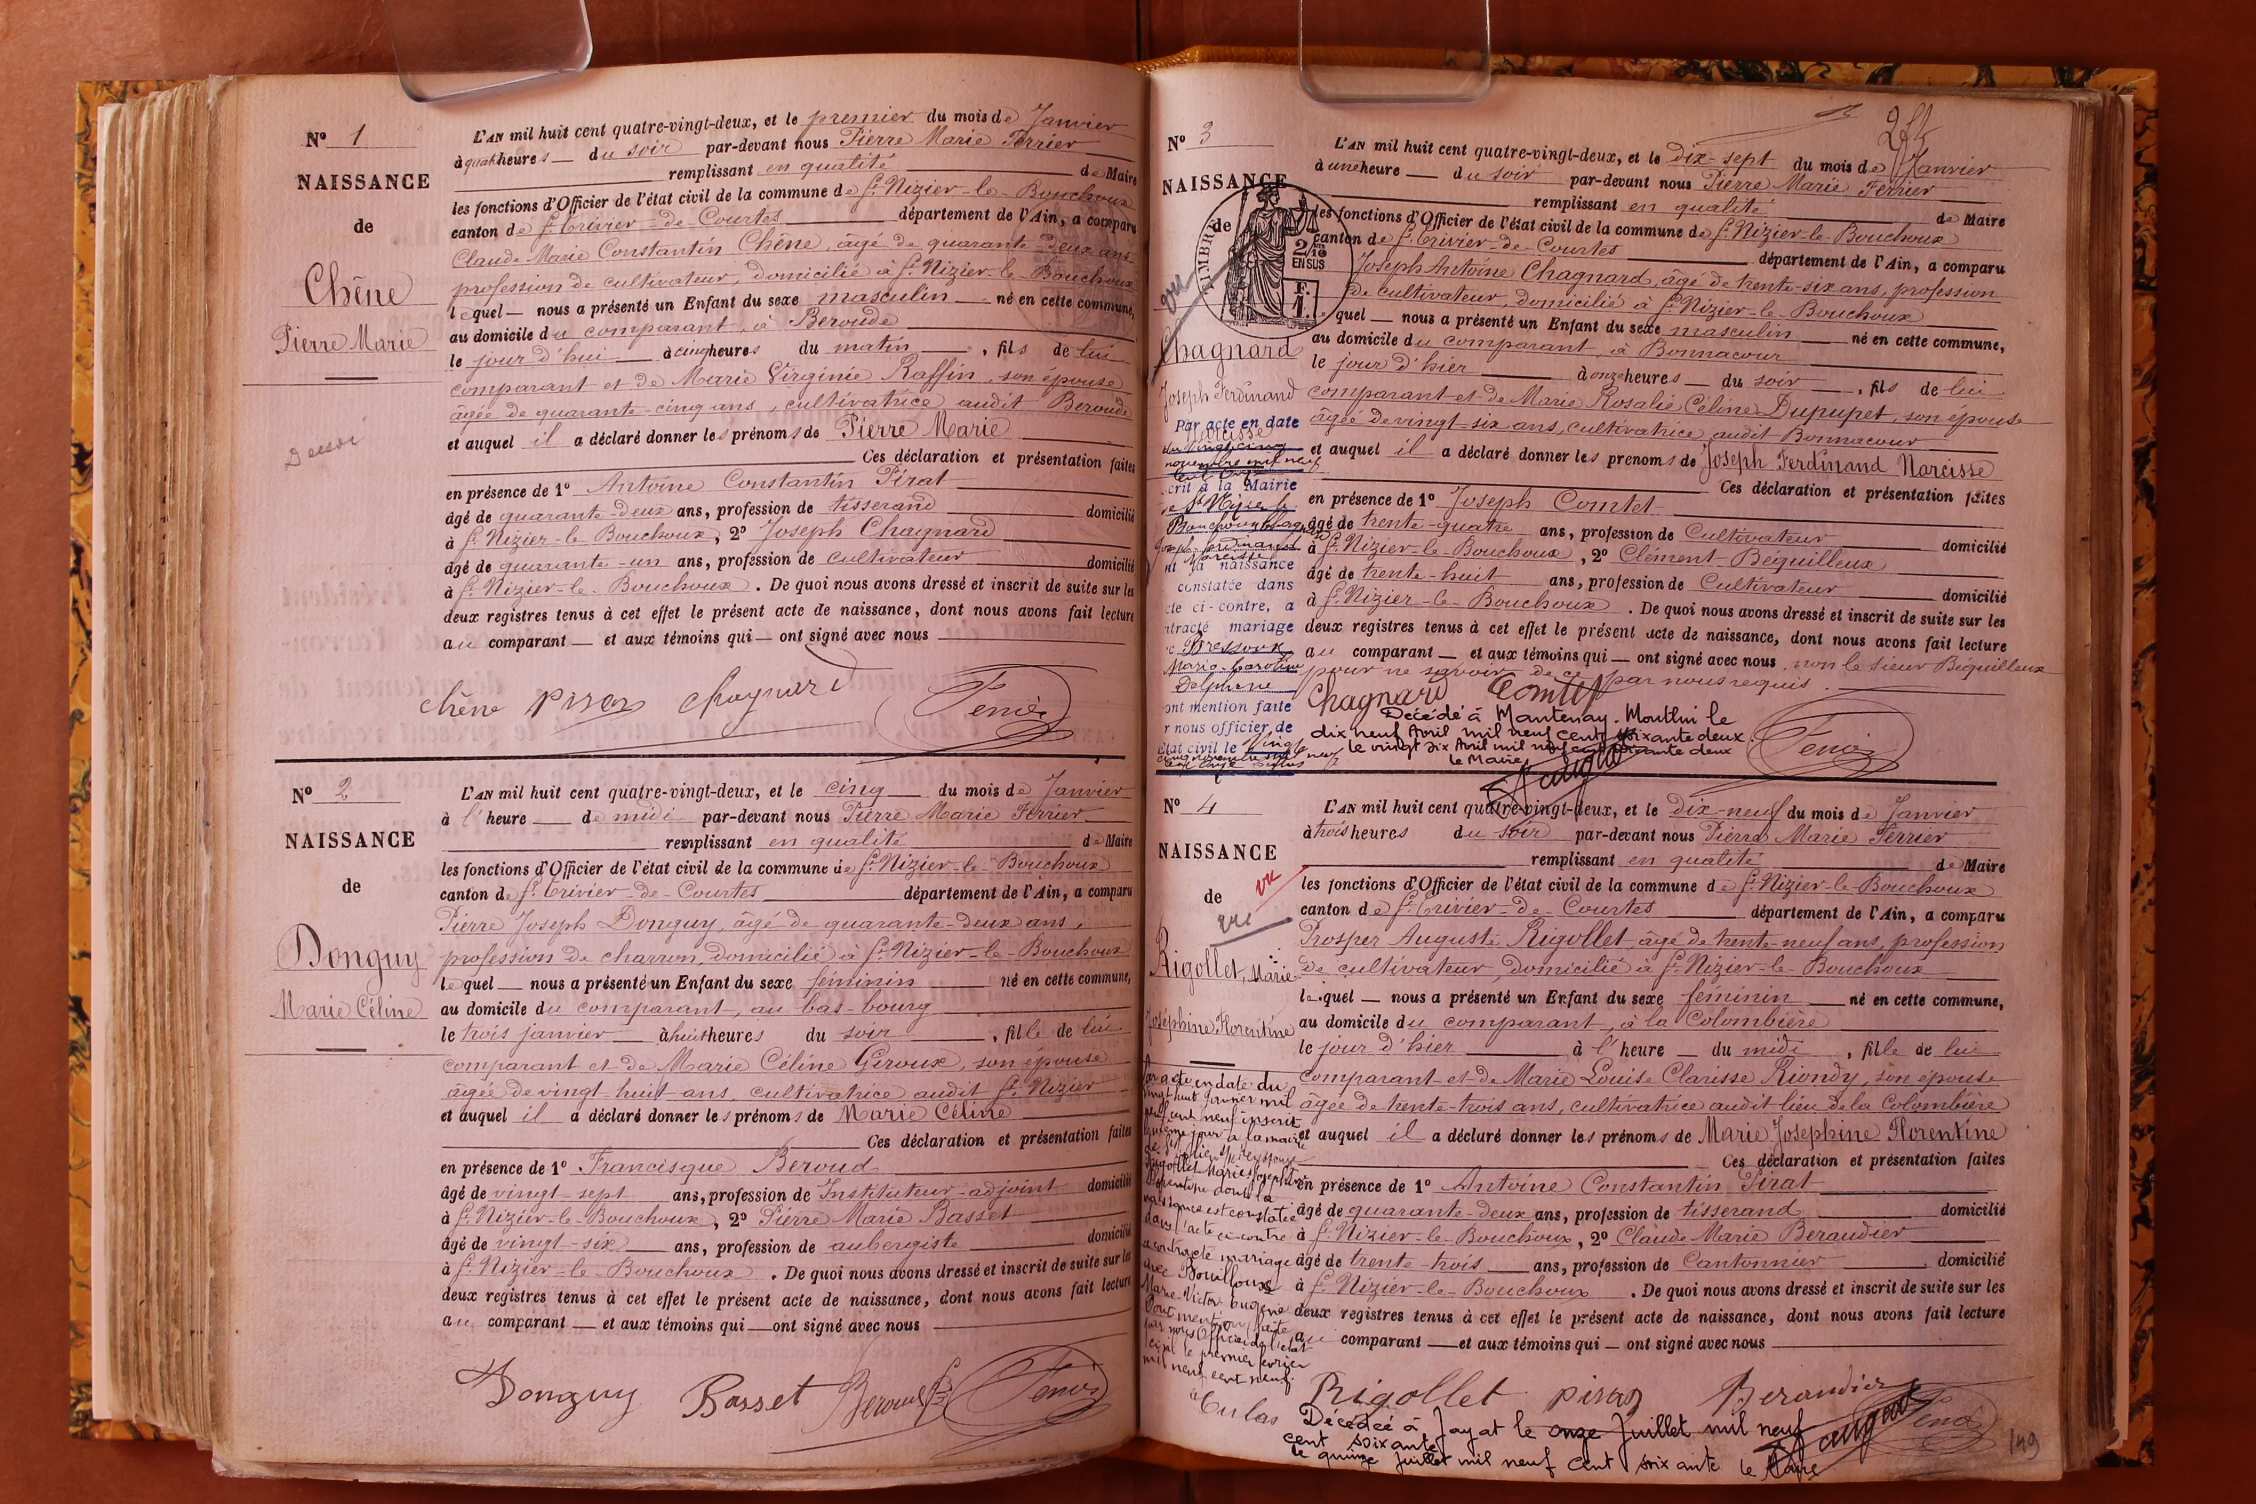 N° 1
NAISSANCE
de
Chêne
Pierre Marie
L'AN mil huit cent quatre-vingt-deux, et le premier du mois de Janvier
à quatre heures du soir par-devant nous Pierre Marie Ferrier
remplissant en qualité de Maire
les fonctions d'Officier de l'état civil de la commune de St Nizier-le-Bouchoux
canton de St Trivier-de-Courtes département de l'Ain, a comparu
Claude Marie Constantin Chêne, âgé de quarante deux ans
profession de cultivateur, domicilié à St Nizier-le-Bouchoux
lequel nous a présenté un Enfant du sexe masculin né en cette commune,
au domicile du comparant, à Beroude
le jour d'hui à cinq heures du matin, fils de lui
comparant et de Marie Virginie Raffin, son épouse
âgée de quarante-cinq ans, cultivatrice audit Beroude
et auquel il a déclaré donner les prénoms de Pierre Marie
Ces déclaration et présentation faites
en présence de 1° Antoine Constantin Pirat
âgé de quarante-deux ans, profession de tisserand domicilié
à St Nizier-le-Bouchoux, 2° Joseph Chagnard
âgé de quarante-un ans, profession de cultivateur domicilié
à St Nizier-le-Bouchoux. De quoi nous avons dressé et inscrit de suite sur les
deux registres tenus à cet effet le présent acte de naissance, dont nous avons fait lecture
au comparant et aux témoins qui ont signé avec nous
Chêne Pirat Chagnard Ferrier
N° 2
NAISSANCE
de
Donguy
Marie Céline
L'AN mil huit cent quatre-vingt-deux, et le cinq du mois de Janvier
à l'heure de midi par-devant nous Pierre Marie Ferrier
remplissant en qualité de Maire
les fonctions d'Officier de l'état civil de la commune de St Nizier-le-Bouchoux
canton de St Trivier-de-Courtes département de l'Ain, a comparu
Pierre Joseph Donguy, âgé de quarante-deux ans,
profession de charron, domicilié à St Nizier-le-Bouchoux
lequel nous a présenté un Enfant du sexe féminin né en cette commune,
au domicile du comparant, au bas-bourg
le trois janvier à huit heures du soir, fille de lui
comparant et de Marie Céline Giroux, son épouse
âgée de vingt-huit ans, cultivatrice audit St Nizier
et auquel il a déclaré donner les prénoms de Marie Céline
Ces déclaration et présentation faites
en présence de 1° Francisque Beroud
âgé de vingt-sept ans, profession de Instituteur-adjoint domicilié
à St Nizier-le-Bouchoux, 2° Pierre Marie Basset
âgé de vingt-six ans, profession de aubergiste domicilié
à St Nizier-le-Bouchoux. De quoi nous avons dressé et inscrit de suite sur les
deux registres tenus à cet effet le présent acte de naissance, dont nous avons fait lecture
au comparant et aux témoins qui ont signé avec nous
Donguy Basset Beroud Ferrier
N° 3
NAISSANCE
de
TIMBRE
2/10
EN SUS
F.
1.
vu
Chagnard
Joseph Ferdinand
Narcisse
Par acte en date
du vingt cinq
novembre mil neuf
cent onze
crit à la Mairie
de St Nizier le
Bouchoux Chagnard
Joseph Ferdinand
Narcisse
nt la naissance
constatée dans
cte ci-contre, a
ntracté mariage
c Bressoux
Marie-Caroline
Delphine
ont mention faite
r nous officier de
état civil le Vingt
cinq novembre mil neuf
cent onze
L'AN mil huit cent quatre-vingt-deux, et le dix-sept du mois de Janvier
à une heure du soir par-devant nous Pierre Marie Ferrier
remplissant en qualité de Maire
les fonctions d'Officier de l'état civil de la commune de St Nizier-le-Bouchoux
canton de St Trivier-de-Courtes département de l'Ain, a comparu
Joseph Antoine Chagnard, âgé de trente-six ans, profession
de cultivateur, domicilié à St Nizier-le-Bouchoux
quel nous a présenté un Enfant du sexe masculin né en cette commune,
au domicile du comparant, à Bonnacour
le jour d'hier à onze heures du soir, fils de lui
comparant et de Marie Rosalie Céline Dupupet, son épouse
âgée de vingt-six ans, cultivatrice audit Bonnacour
et auquel il a déclaré donner les prénoms de Joseph Ferdinand Narcisse
Ces déclaration et présentation faites
en présence de 1° Joseph Comtet
âgé de trente-quatre ans, profession de Cultivateur domicilié
à St Nizier-le-Bouchoux, 2° Clément Béquilleux
âgé de trente-huit ans, profession de Cultivateur domicilié
à St Nizier-le-Bouchoux. De quoi nous avons dressé et inscrit de suite sur les
deux registres tenus à cet effet le présent acte de naissance, dont nous avons fait lecture
au comparant et aux témoins qui ont signé avec nous, non le sieur Béquilleux
pour ne savoir de ce par nous requis.
Chagnard Comtet Ferrier
Décédé à Mantenay-Montlin le
dix neuf Avril mil neuf cent soixante deux.
le vingt six Avril mil neuf cent soixante deux
le Maire,
N° 4
NAISSANCE
de
vu
vu
Rigollet, Marie
Joséphine Florentine
Par acte en date du
vingt huit Janvier mil
neuf cent neuf inscrit
le même jour à la mairie
de St Julien s/ Reyssouze
Rigollet Marie Joséphine
Florentine dont la
naissance est constatée
dans l'acte ci-contre
a contracté mariage
avec Bouilloux
Marie-Victor Eugène
Dont mention faite
par nous Officier de l'état
civil le premier février
mil neuf cent neuf.
L'AN mil huit cent quatre-vingt-deux, et le dix-neuf du mois de Janvier
à trois heures du soir par-devant nous Pierre Marie Ferrier
remplissant en qualité de Maire
les fonctions d'Officier de l'état civil de la commune de St Nizier-le-Bouchoux
canton de St Trivier-de-Courtes département de l'Ain, a comparu
Prosper Auguste Rigollet, âgé de trente-neuf ans, profession
de cultivateur, domicilié à St Nizier-le-Bouchoux
lequel nous a présenté un Enfant du sexe féminin né en cette commune,
au domicile du comparant, à la Colombière
le jour d'hier à l'heure du midi, fille de lui
comparant et de Marie Louise Clarisse Riondy, son épouse
âgée de trente-trois ans, cultivatrice audit lieu de la Colombière
et auquel il a déclaré donner les prénoms de Marie Josephine Florentine
Ces déclaration et présentation faites
en présence de 1° Antoine Constantin Pirat
âgé de quarante-deux ans, profession de tisserand domicilié
à St Nizier-le-Bouchoux, 2° Claude Marie Beraudier
âgé de trente-trois ans, profession de Cantonnier, domicilié
à St Nizier-le-Bouchoux. De quoi nous avons dressé et inscrit de suite sur les
deux registres tenus à cet effet le présent acte de naissance, dont nous avons fait lecture
au comparant et aux témoins qui ont signé avec nous
Rigollet Pirat Beraudier
Décédée à Jayat le onze Juillet mil neuf
cent soixante
le quinze Juillet mil neuf cent soixante le Maire
149